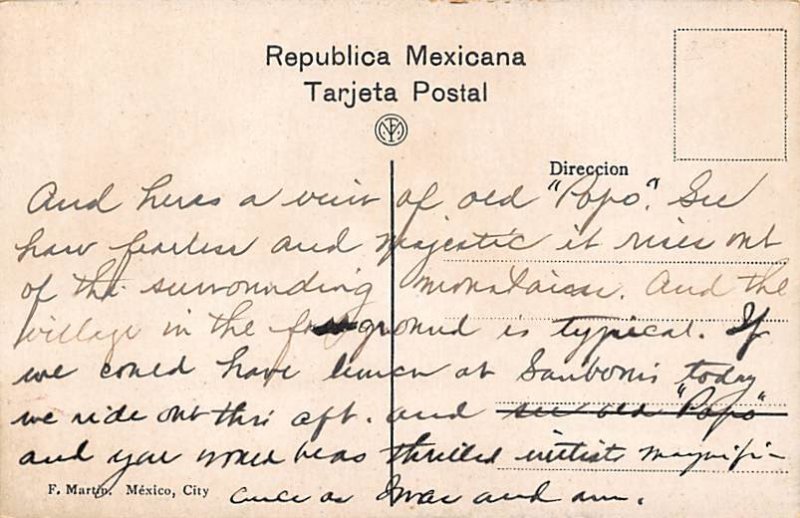 Republica Mexicana
Tarjeta Postal
Direccion
And heres a view of old "Popo". See
how fearless and majestic it rises out
of the surrounding mountains. And the
village in the foreground is typical. If
we could have lunch at Sanborns today
we ride out this aft. and see old "Popo"
and you would be as thrilled with its magnifi-
cence as I was and am.
F. Martin. México, City